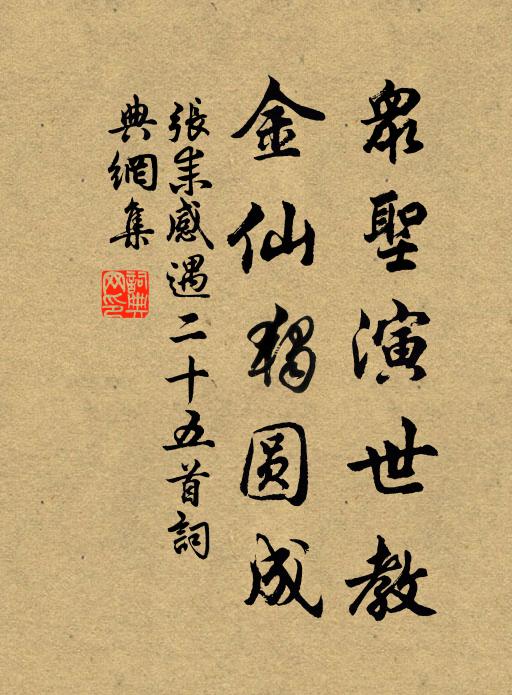 眾聖演世教
金仙獨圓成
張耒感遇二十五首詞
典網集
詞典網印